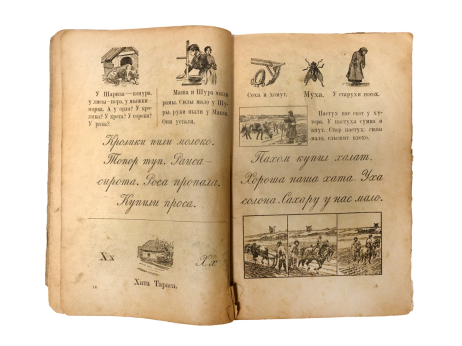 У Шарика — конура,
у лисы - нора, у мышки -
норка. А у осы? У кро-
лика? У крота? У сороки?
У рака?
Маша и Шура мыли
рамы. Силы мало у Шу-
ры, руки ныли у Маши.
Они устали.
Кролики пили молоко.
Топор туп. Раиса —
сирота. Роса пропала.
Купили проса.
Хх
Хх
Хата Тараса.
Соха и хомут.
Муха.
У старухи посох.
Пастух пас скот у ху-
тора. У пастуха сумка и
кнут. Стар пастух, силы
мало, слышит плохо.
Пахом купил халат.
Хороша наша хата. Уха
солона. Сахару у нас мало.